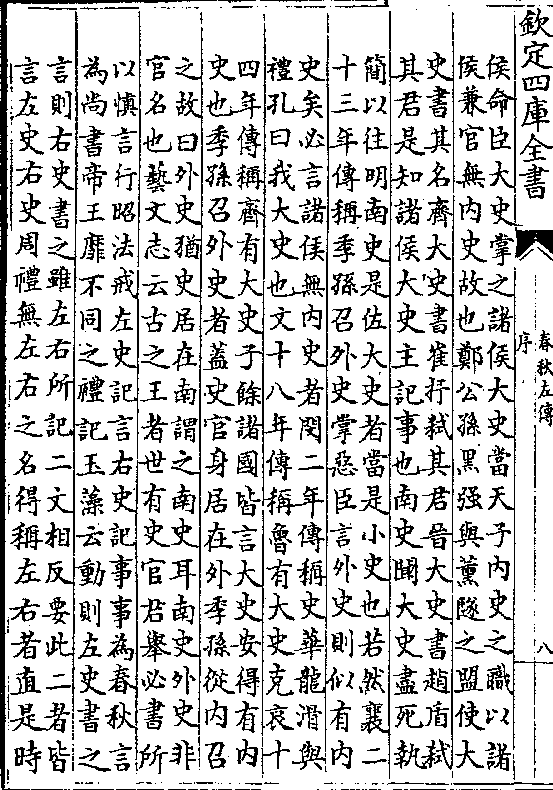 欽定四庫全書
春秋左傳
序
八
侯命臣大史掌之諸侯大史當天子内史之職以諸
侯兼官無内史故也鄭公孫黑强與薰隧之盟使大
史書其名齊大史書崔杼弑其君晉大史書趙盾弑
其君是知諸侯大史主記事也南史聞大史盡死執
簡以往明南史是佐大史者當是小史也若然襄二
十三年傳稱季孫召外史掌惡臣言外史則似有内
史矣必言諸侯無内史者閔二年傳稱史華龍滑與
禮孔曰我大史也文十八年傳稱魯有大史克哀十
四年傳稱齊有大史子餘諸國皆言大史安得有内
史也季孫召外史者蓋史官身居在外季孫從内召
之故曰外史猶史居在南謂之南史耳南史外史非
官名也藝文志云古之王者世有史官君舉必書所
以慎言行昭法戒左史記言右史記事事為春秋言
為尚書帝王靡不同之禮記玉藻云動則左史書之
言則右史書之雖左右所記二文相反要此二者皆
言左史右史周禮無左右之名得稱左右者直是時